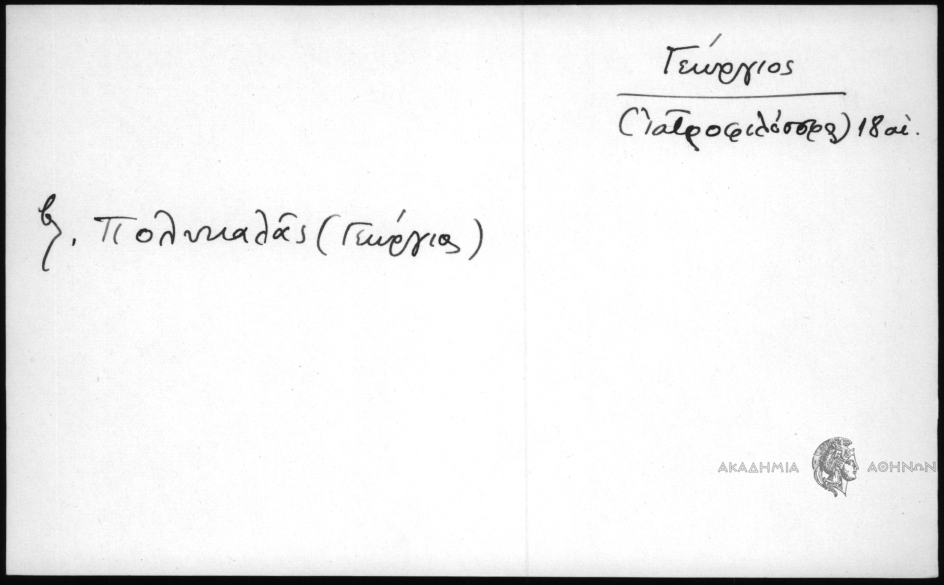 Γεώργιος
(ἰατροφιλόσοφος) 18 αἰ.
βλ. Πολυκαλᾶς (Γεώργιος)
ΑΚΑΔΗΜΙΑ ΑΘΗΝΩΝ